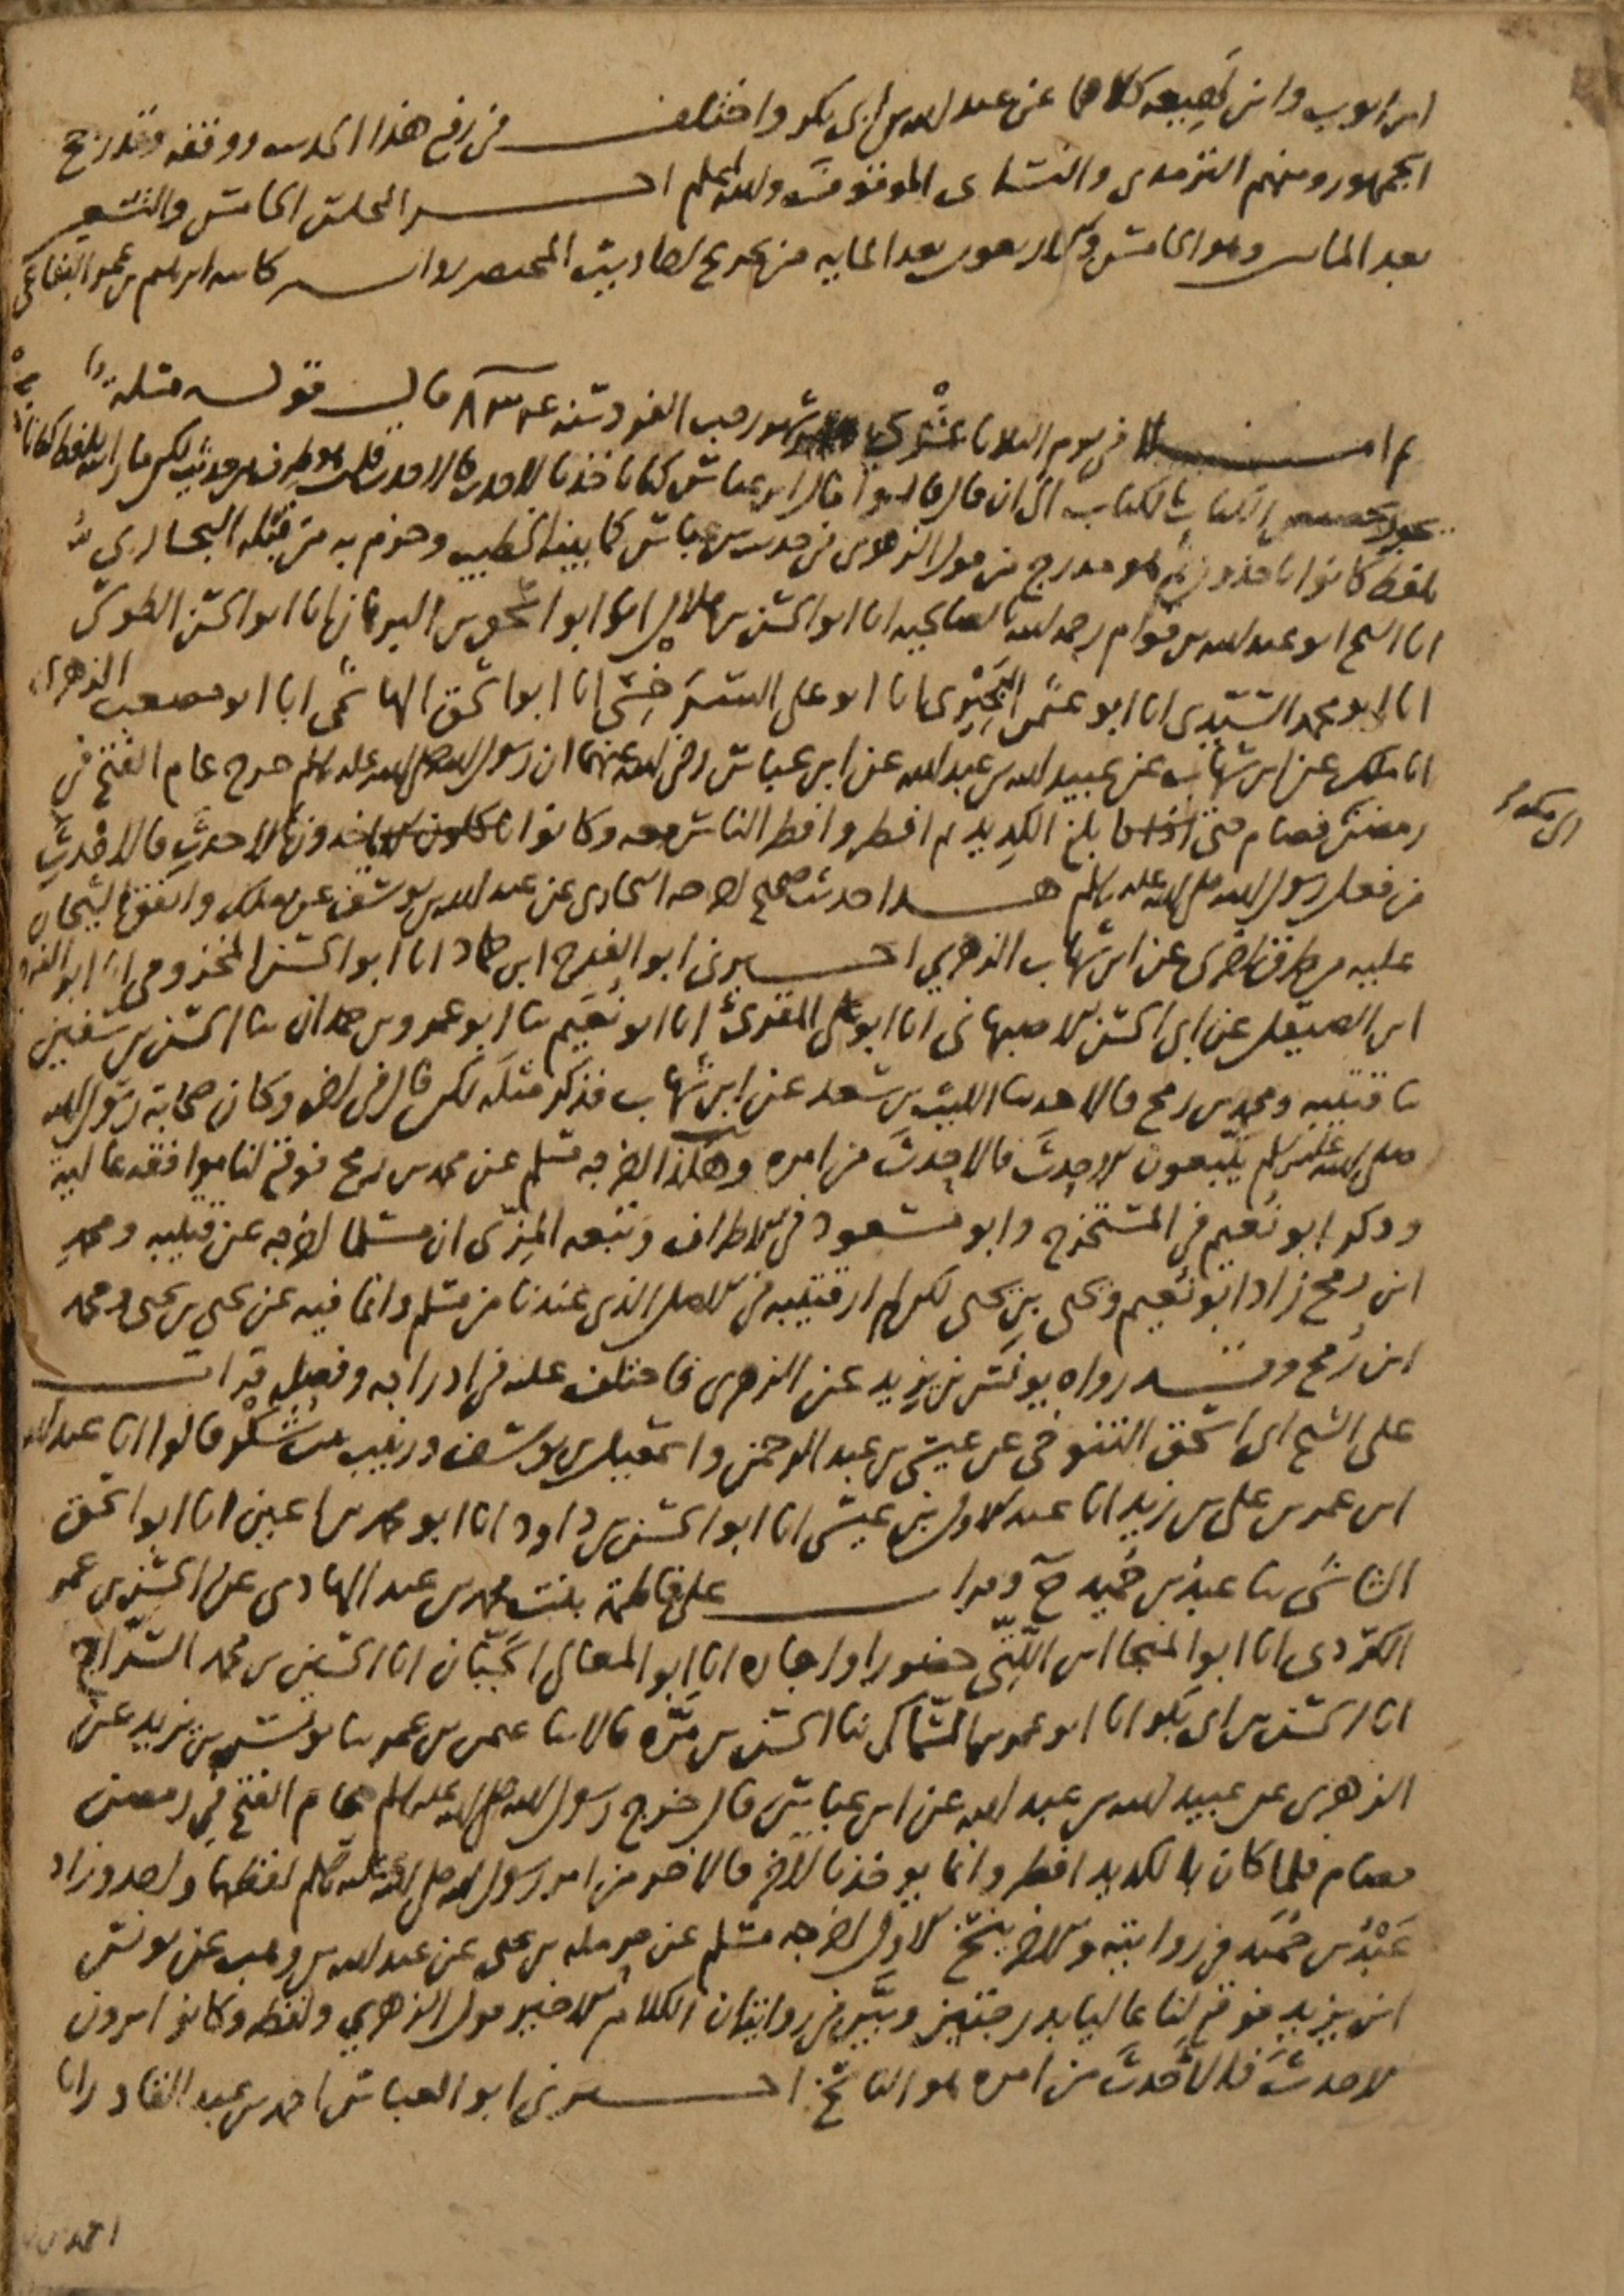 ابن ايوب وابن لهيعه كلاهما عن عبد الله بن ابى بكر واختلف فى رفع هذا الحديث ووقفه وقد رجح
الجمهور ومنهم الترمذى والنساى الموقوف والله اعلم اخر المجلس الخامس والتسعين
بعد المايه وهو الخامس والاربعون بعد المايه من تخريج احاديث المختصر رواية كاتبه ابراهيم بن عمر البقاعى
ثم املا فى يوم الثلاثا عشرى شهر رجب الفرد سنه ٨٣ قال قوله مثله
يجوز تخصيص الكتاب بالكتاب الى ان قال قالوا قال ابن عباس كنا ناخذ بالاحدث فالاحدث قلت هو طرف من حديث لكن ما رايته بلفظ كنا نا
بلفظ كانوا ياخذون ثم هو مدرج من قول الزهرى فى حديث ابن عباس كما بينه الخطيب وجزم به من قبله البخارى
انا الشيخ ابو عبد الله بن قوام رحمه الله بالصالحيه انا ابو الحسن بن هلال انا ابو اسحق بن البرهان انا ابو الحسن الطوسى
انا ابو محمد السيدى انا ابو عثمن البحيرى انا ابو على السرخسى انا ابو اسحق الهاشمى انا ابو مصعب الزهرى
انا ملك عن ابن شهاب عن عبيد الله بن عبد الله عن ابن عباس رضى الله عنهما ان رسول الله صلى الله عليه وسلم خرج عام الفتح فى
الى مكه
رمضن فصام حتى بلغ الكديد ثم افطر وافطر الناس معه وكانوا ياخذون بالاحدث فالاحدث
من فعل رسول الله صلى الله عليه وسلم هذا حديث صحيح اخرجه البخارى عن عبد الله بن يوسف عن ملك واتفق الشيخان
عليه من طرق اخرى عن ابن شهاب الزهرى اخبرنى ابو الفرج ابن حماد انا ابو الحسن المخزومى انا ابو الفرج
ابن الصيقل عن ابى الحسن الاصبهانى انا ابو على المقرئ انا ابو نعيم ثنا ابو عمرو بن حمدان ثنا الحسن بن سفين
ثنا قتيبه ومحمد بن رمح قالا حدثنا الليث بن سعد عن ابن شهاب فذكر مثله لكن قال فى اخره وكان صحابة رسول الله
صلى الله عليه وسلم يتبعون الاحدث فالاحدث من امره وهكذا اخرجه مسلم عن محمد بن رمح فوقع لنا موافقه عاليه
وذكر ابو نعيم فى المستخرج وابو مسعود فى الاطراف وتبعه المزى ان مسلما اخرجه عن قتيبه ومحمد
ابن رمح زاد ابو نعيم ويحيى بن يحيى لكن لم ار قتيبه فى الاصل الذى عندنا من مسلم وانما فيه عن يحيى بن يحيى ومحمد
ابن رمح وقد رواه يونس بن يزيد عن الزهرى فاختلف عليه فى ادراجه وفصله قرات
على الشيخ ابى اسحق التنوخى عن عيسى بن عبد الرحمن واسمعيل بن يوسف وزينب بنت شكر قالوا انا عبد الله
ابن عمر بن على بن زيد انا عبد الاول بن عيسى انا ابو الحسن بن داود انا ابو محمد بن اعين انا ابو اسحق
الشاشى ثنا عبد بن حميد ح وقرات على فاطمة بنت محمد بن عبد الهادى عن الحسن بن عمر
الكردى انا ابو المنجا ابن اللتى حضورا واجازه انا ابو المعالى الجبان انا الحسين بن محمد السراج
انا الحسن بن ابى بكر انا ابو عمرو بن السماك ثنا الحسن بن مكرم قالا ثنا عثمن بن عمر ثنا يونس بن يزيد عن
الزهرى عن عبيد الله بن عبد الله عن ابن عباس قال خرج رسول الله صلى الله عليه وسلم عام الفتح فى رمضن
فصام فلما كان بالكديد افطر وانما يوخذ بالاخر فالاخر من امر رسول الله صلى الله عليه وسلم لفظهما واحد وزاد
عبد بن حميد فى روايته والاخر ينسخ الاول اخرجه مسلم عن حرمله بن يحيى عن عبد الله بن وهب عن يونس
ابن يزيد فوقع لنا عاليا بدرجتين وبين فى روايته ان الكلام الاخير قول الزهرى ولفظه وكانوا يرون
الاحدث فالاحدث من امره هو الناسخ اخبرنى ابو العباس احمد بن عبد القادر انا
احمد بن